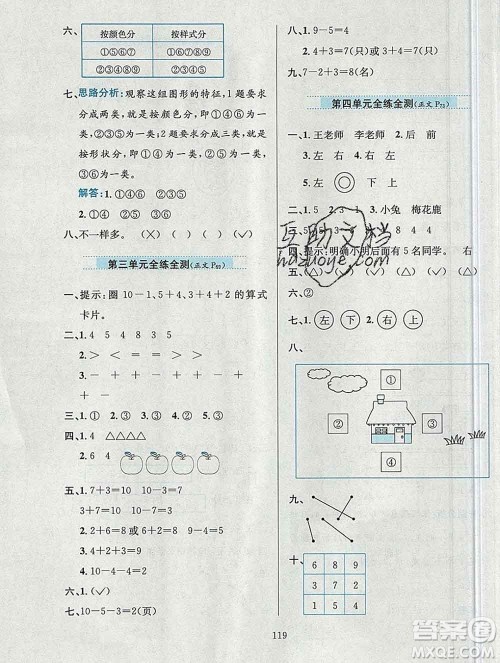 六、
按颜色分 按样式分
①⑤⑥⑦ ①④⑥⑨
②③④⑧⑨ ②③⑤⑦⑧
七、思路分析:观察这组图形的特征,1题要求
分成两类,按颜色分,可以分成①④⑥
为一类,②③⑤为一类;2题要求分成三
类,就是按形状分,①④为一类,②⑤为一类,
③⑥为一类。
解答:1.①④⑥ ②③⑤
2.①④ ②⑤ ③⑥
八、不一样多。 (×) (✓)
第三单元全练全测(正文P₇₁)
一、提示:圈 10-1、5+4、3+4+2 的算式
卡片。
二、1.4 5 2 8 9
2.> < = > = <
3.- + + - + +
三、1.① 2.② 3.③
四、1.4 △△△△
2.6 4
五、1.7+3=10 10-3=7
3+7=10 10-7=3
2.2+6=8 3.9-6=3
4.2+2+3=7 5.10-6=4
6.10-4-4=2
六、1.(✓)
七、10-5-3=2(页)
八、1.9-5=4
2.4+3=7(只)或 3+4=7(只)
九、7-2+3=8(名)
第四单元全练全测(正文P₇₅)
一、1.王老师 李老师 2.后 前
3.左 右 4.左 右
5.左 下 上
二、1.5 2.3 1 3.小兔 梅花鹿
三、
四、提示:明确小明后面有5名同学。 右
五、
六、②
七、1.左 下 2.右 上
八、
①
② ③
④
九、
十、
6 8 9
3 7 2
1 5 4
互助文档
hdzuoye.com
119
答案圈
MXQE.COM